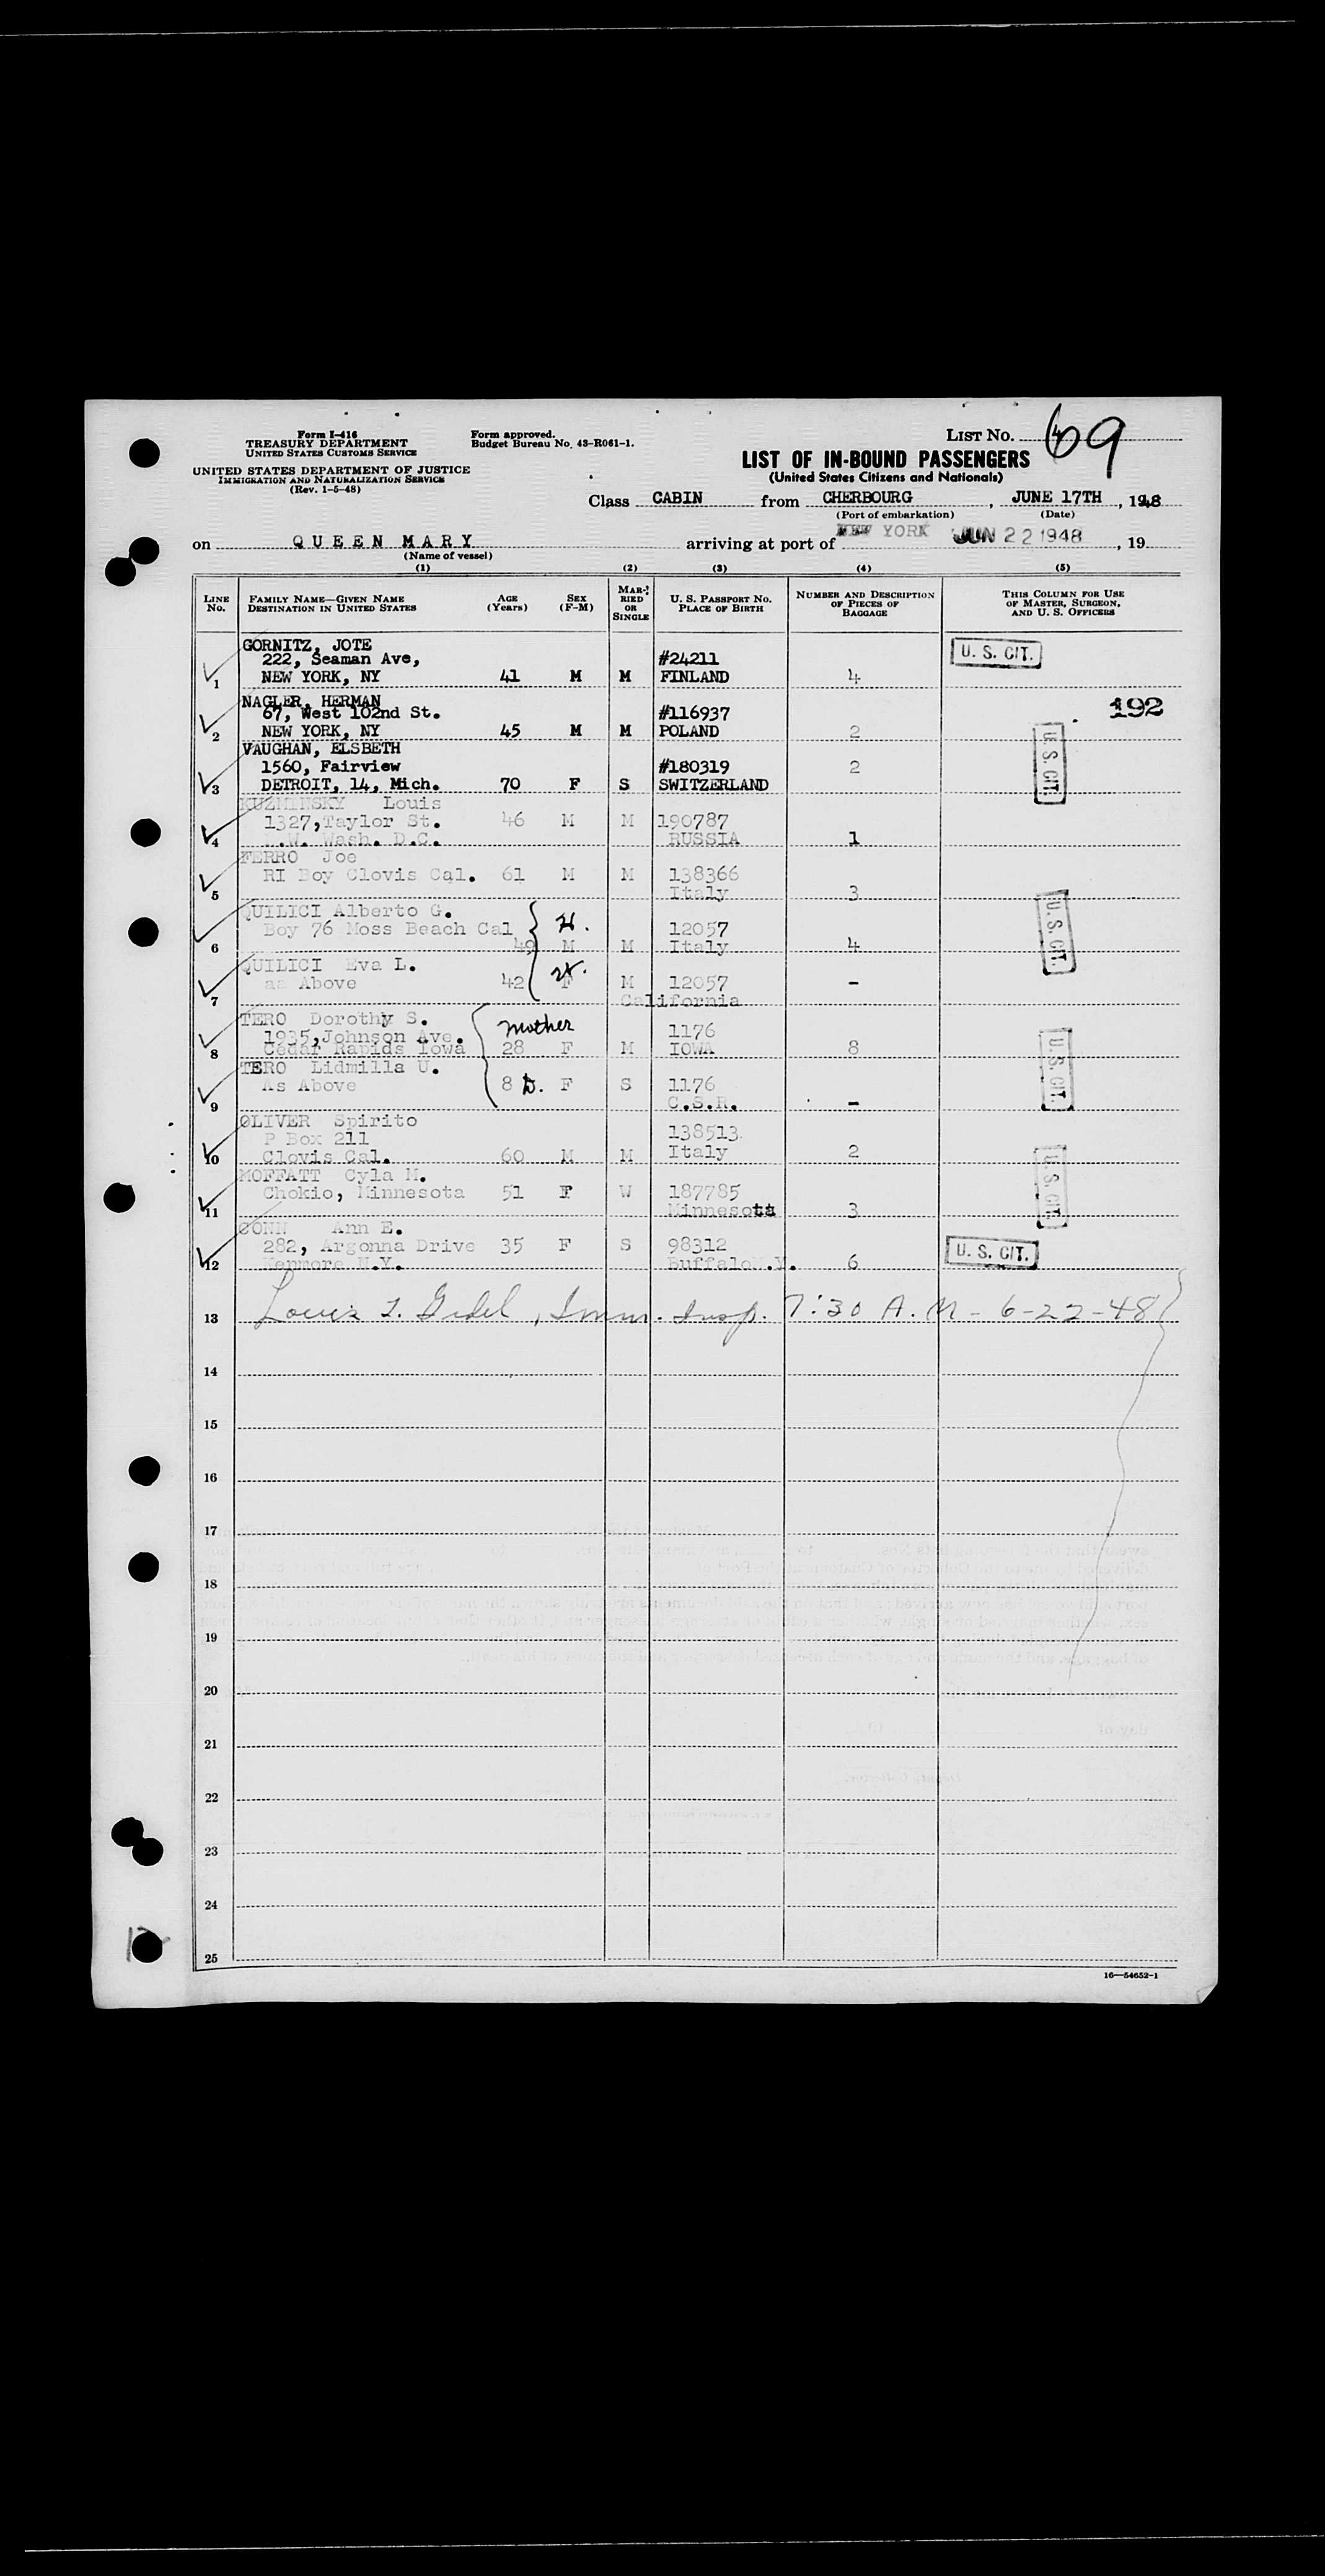 Form I-416
TREASURY DEPARTMENT
UNITED STATES CUSTOMS SERVICE
UNITED STATES DEPARTMENT OF JUSTICE
IMMIGRATION AND NATURALIZATION SERVICE
(Rev. 1-5-48)
Form approved.
Budget Bureau No. 43-R061-1.
LIST No. 69
LIST OF IN-BOUND PASSENGERS
(United States Citizens and Nationals)
Class CABIN from CHERBOURG, JUNE 17TH, 1948
(Port of embarkation) (Date)
on QUEEN MARY arriving at port of NEW YORK JUN 22 1948, 19
(Name of vessel)
(1) (2) (3) (4) (5)
LINE No. FAMILY NAME—GIVEN NAME DESTINATION IN UNITED STATES AGE (Years) SEX (F-M) MARRIED OR SINGLE U. S. PASSPORT No. PLACE OF BIRTH NUMBER AND DESCRIPTION OF PIECES OF BAGGAGE THIS COLUMN FOR USE OF MASTER, SURGEON, AND U. S. OFFICERS
GORNITZ, JOTE U. S. CIT.
222, Seaman Ave, #24211
1 NEW YORK, NY 41 M M FINLAND 4
NAGLER, HERMAN 192
67, West 102nd St. #116937
2 NEW YORK, NY 45 M M POLAND 2
VAUGHAN, ELSBETH U. S. CIT.
1560, Fairview #180319 2
3 DETROIT, 14, Mich. 70 F S SWITZERLAND
KUZMINSKY Louis
1327, Taylor St. 46 M M 190787
4 .W. Wash. D.C. RUSSIA 1
FERRO Joe
RI Boy Clovis Cal. 61 M M 138366
5 Italy 3
QUILICI Alberto G. H. U. S. CIT.
Boy 76 Moss Beach Cal 12057
6 49 M M Italy 4
QUILICI Eva L. W.
as Above 42 F M 12057 -
7 California
TERO Dorothy S. mother U. S. CIT.
1935, Johnson Ave. 1176
8 Cedar Rapids Iowa 28 F M IOWA 8
TERO Lidmilla U.
As Above 8 D. F S 1176
9 C.S.R. -
OLIVER Spirito
P Box 211 138513
10 Clovis Cal. 60 M M Italy 2
MOFFATT Cyla M. U. S. CIT.
Chokio, Minnesota 51 F W 187785
11 Minnesota 3
CONN Ann E.
282, Argonna Drive 35 F S 98312 U. S. CIT.
12 Kenmore N.Y. Buffalo N.Y. 6
13 Louis I. Gidel, Imm. Insp. 7:30 A.M - 6-22-48
14
15
16
17
18
19
20
21
22
23
24
25
12
16—54652-1